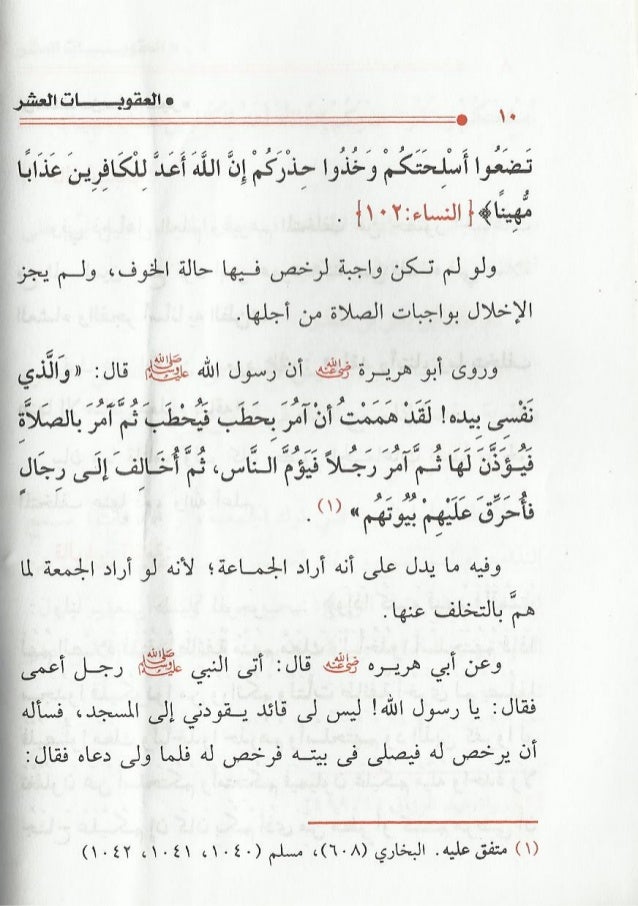 ١٠
• العقوبـــات العشر
تَضَعُوا أَسْلِحَتَكُمْ وَخُذُوا حِذْرَكُمْ إِنَّ اللَّهَ أَعَدَّ لِلْكَافِرِينَ عَذَابًا
مُّهِينًا﴾ {النساء:١٠٢} .
ولو لم تكن واجبة لرخص فيها حالة الخوف، ولم يجز
الإخلال بواجبات الصلاة من أجلها.
وروى أبو هريرة رضي الله عنه أن رسول الله ﷺ قال: «وَالَّذي
نَفْسِي بِيده! لَقَدْ هَمَمْتُ أَنْ آمُرَ بِحَطَب فَيُحْطَبَ ثُمَّ آمُرَ بالصَلاَّة
فَيُؤَذَّنَ لَهَا ثُمَّ آمُرَ رَجُلاً فَيَؤُمَّ النَّاسَ، ثُمَّ أُخَالِفَ إِلَى رِجَالٍ
فَأُحَرِّقَ عَلَيْهِمْ بُيُوتَهُم» (١) .
وفيه ما يدل على أنه أراد الجماعة؛ لأنه لو أراد الجمعة لما
همَّ بالتخلف عنها.
وعن أبي هريره رضي الله عنه قال: أتى النبي ﷺ رجل أعمى
فقال: يا رسول الله! ليس لى قائد يقودني إلى المسجد، فسأله
أن يرخص له فيصلى فى بيته فرخص له فلما ولى دعاه فقال:
(١) متفق عليه. البخاري (٦٠٨)، مسلم (١٠٤٠، ١٠٤١، ١٠٤٢)